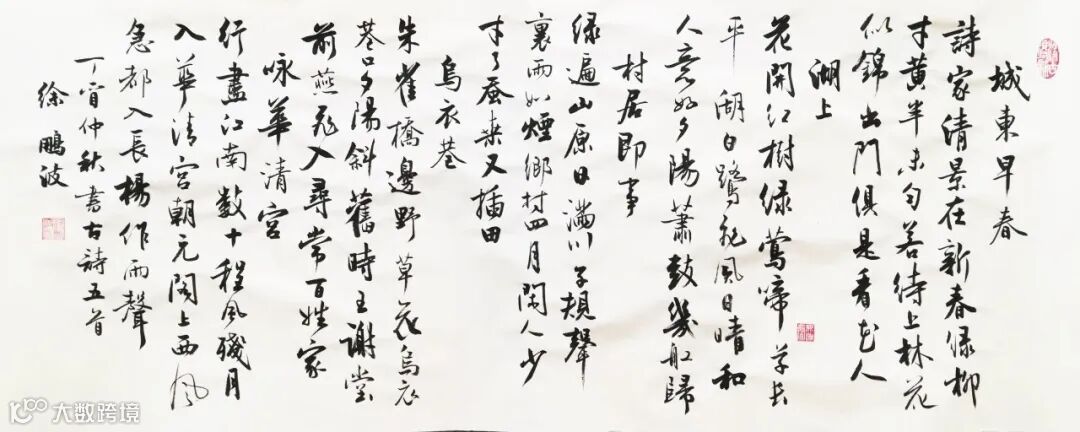 城東早春
詩家清景在新春绿柳
才黄半未匀若待上林花
似錦出門俱是看花人
湖上
花開红樹绿鶯啼草长
平湖白鷺飛風日晴和
人意好夕陽蕭鼓幾船歸
村居即事
绿遍山原白滿川子規聲
裏雨如煙鄉村四月閑人少
才了蚕桑又插田
烏衣巷
朱雀橋邊野草花烏衣
巷口夕陽斜舊時王謝堂
前燕飛入尋常百姓家
咏華清宮
行盡江南數十程風殘月
入華清宮朝元閣上西風
急都入長楊作雨聲
丁酉仲秋書古詩五首
徐鵬波
大数跨境